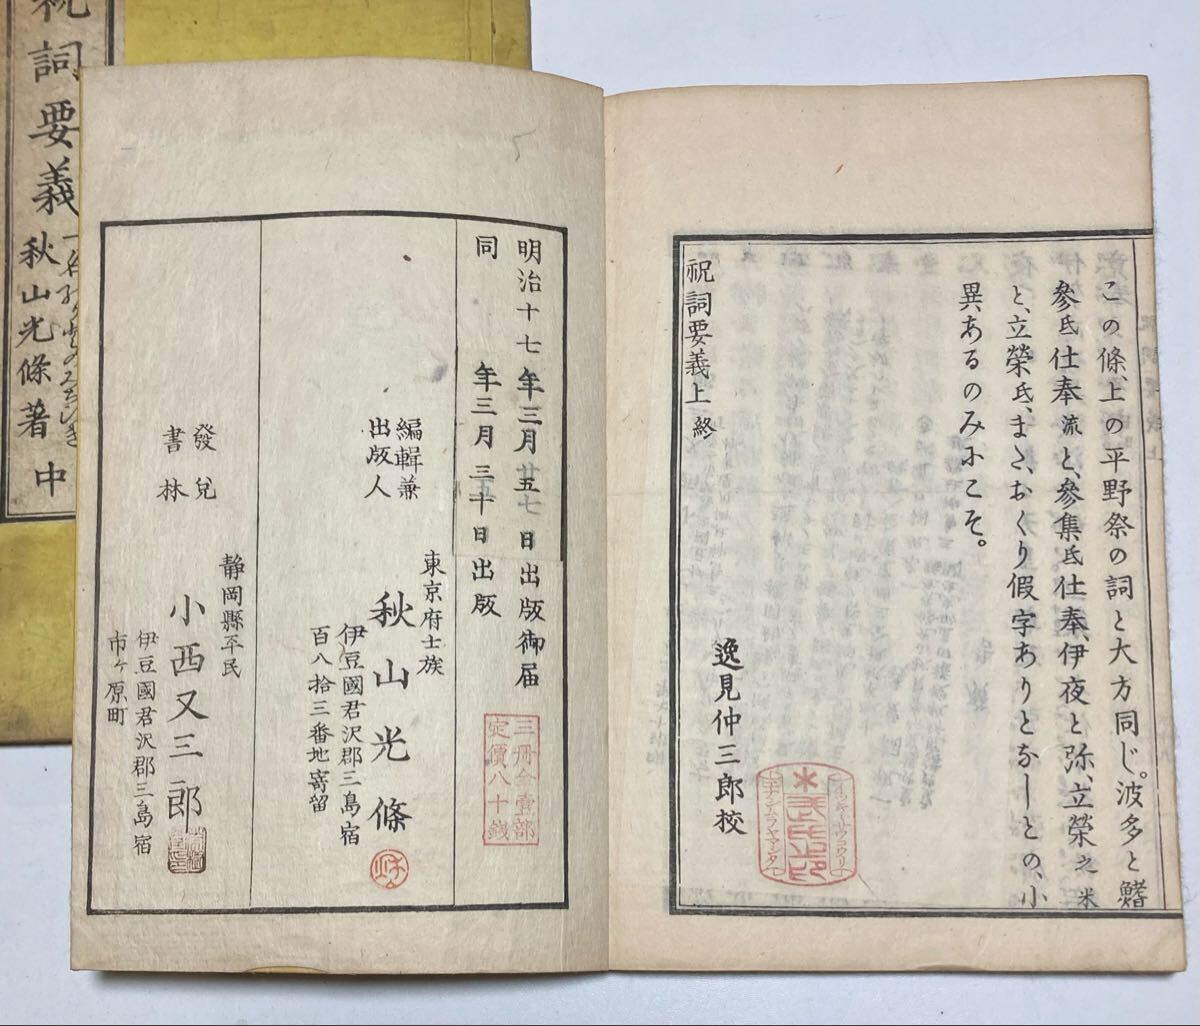 この條、上の平野祭の詞と大方同じ。波多と鰭
參氐仕奉流と、參集氐仕奉、伊夜と弥、立榮之米
と、立榮氐、また、おくり假字ありとなしとの、小
異あるのみにこそ。
祝詞要義上終
逸見仲三郎校
明治十七年三月廿五七日出版御届
同年三月三十五日出版
三冊合壹部
定價八十錢
編輯兼
出版人
東京府士族
秋山光條
伊豆國君沢郡三島宿
百八拾三番地寄留
發兌
書林
静岡縣平民
小西又三郎
伊豆國君沢郡三島宿
市ヶ原町
祝詞要義
秋山光條著
中